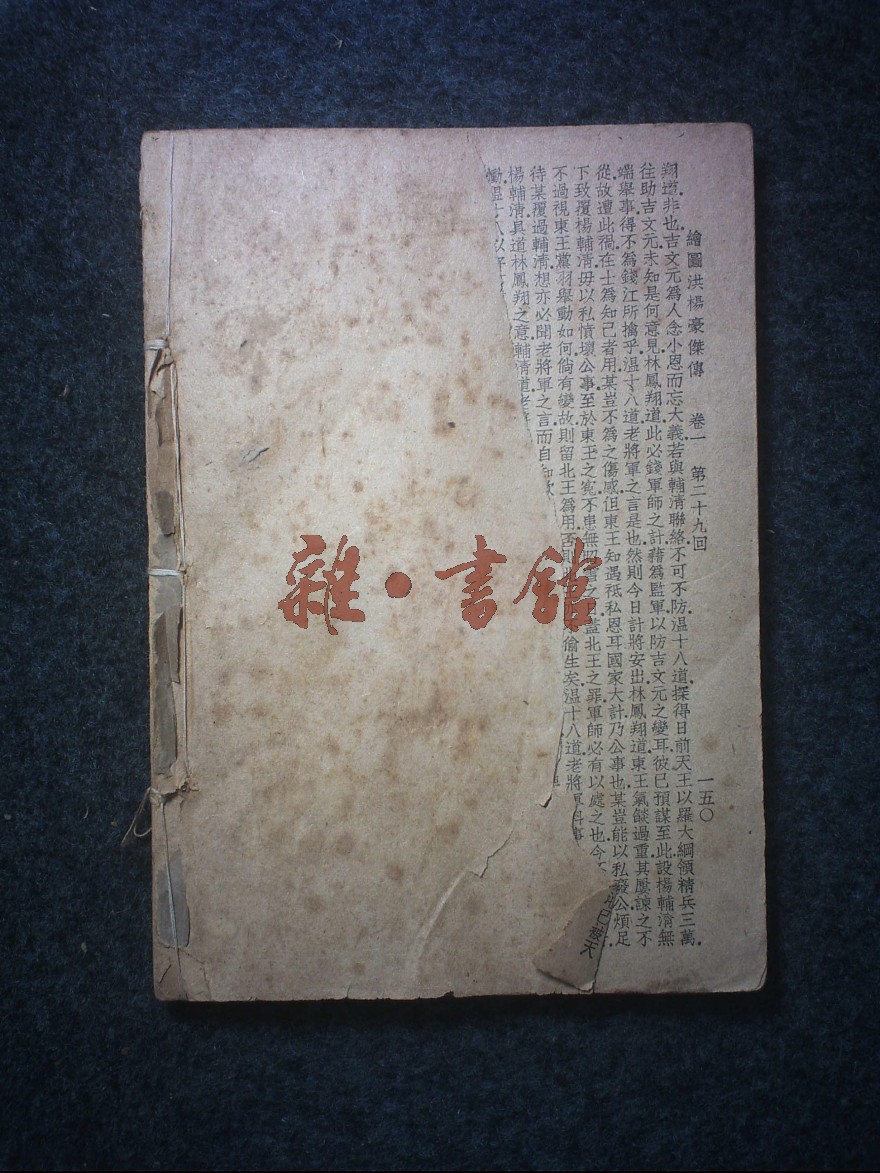 繪圖洪楊豪傑傳 卷一 第二十九回 一五〇
翔道.非也.吉文元爲人念小恩而忘大義若與輔清聯絡.不可不防.温十八道.探得日前天王以羅大綱領精兵三萬.
往助吉文元未知是何意見.林鳳翔道.此必錢軍師之計.藉爲監軍以防吉文元之變耳.彼已預謀至此.設楊輔清無
端舉事.得不爲錢江所擒乎.温十八道老將軍之言是也.然則今日計將安出.林鳳翔道.東王氣燄過重.其屢諫之不
從.故遭此禍.在士爲知己者用.某豈不爲之傷感.但東王知遇.祗私恩耳.國家大計.乃公事也.某豈能以私廢公.煩足
下致覆楊輔清.毋以私憤壞公事.至於東王之寃.不患無之日.蓋北王之罪.軍師必有以處之也.今不
不過視東王黨羽舉動如何.倘有變故.則留北王爲用.否則偷生矣.温十八道.老將軍料事
待某覆過輔清.想亦必聞老將軍之言而自
楊輔清.具道林鳳翔之意.輔清道老
慟.温十八以
雜·書館